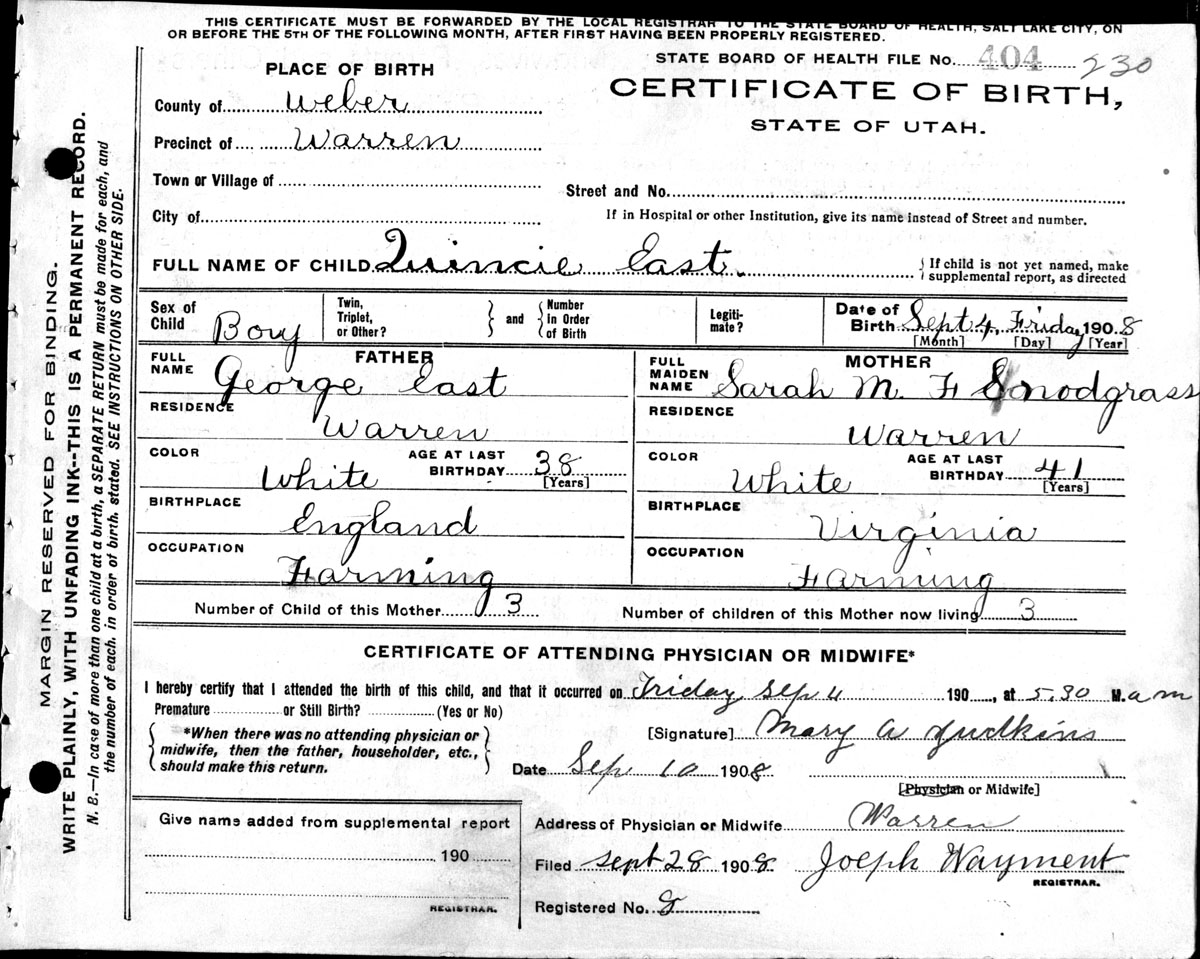 THIS CERTIFICATE MUST BE FORWARDED BY THE LOCAL REGISTRAR TO THE STATE BOARD OF HEALTH, SALT LAKE CITY, ON
OR BEFORE THE 5TH OF THE FOLLOWING MONTH, AFTER FIRST HAVING BEEN PROPERLY REGISTERED.
STATE BOARD OF HEALTH FILE No. 404 230
PLACE OF BIRTH
CERTIFICATE OF BIRTH,
STATE OF UTAH.
County of Weber
Precinct of Warren
Town or Village of
Street and No.
City of
If in Hospital or other Institution, give its name instead of Street and number.
FULL NAME OF CHILD Quincie East.
{ If child is not yet named, make
supplemental report, as directed
Sex of Child Boy
Twin, Triplet, or Other? } and { Number in Order of Birth
Legiti-mate?
Date of Birth Sept 4 Friday 1908
[Month] [Day] [Year]
FATHER
FULL NAME George East
RESIDENCE
Warren
COLOR White
AGE AT LAST BIRTHDAY 38
[Years]
BIRTHPLACE
England
OCCUPATION
Farming
MOTHER
FULL MAIDEN NAME Sarah M. F Snodgrass
RESIDENCE
Warren
COLOR White
AGE AT LAST BIRTHDAY 41
[Years]
BIRTHPLACE
Virginia
OCCUPATION
Farming
Number of Child of this Mother 3
Number of children of this Mother now living 3
CERTIFICATE OF ATTENDING PHYSICIAN OR MIDWIFE*
I hereby certify that I attended the birth of this child, and that it occurred on Friday Sep 4 190 , at 5.30 M. a m
Premature or Still Birth? (Yes or No)
{ *When there was no attending physician or
midwife, then the father, householder, etc.,
should make this return. }
[Signature] Mary A Judkins
Date Sep 10 1908
[Physician or Midwife]
Give name added from supplemental report
190
REGISTRAR.
Address of Physician or Midwife Warren
Filed Sept 28 1908 Joeph Wayment
REGISTRAR.
Registered No. 8
MARGIN RESERVED FOR BINDING.
WRITE PLAINLY, WITH UNFADING INK--THIS IS A PERMANENT RECORD.
N. B.—In case of more than one child at a birth, a SEPARATE RETURN must be made for each, and
the number of each, in order of birth, stated. SEE INSTRUCTIONS ON OTHER SIDE.